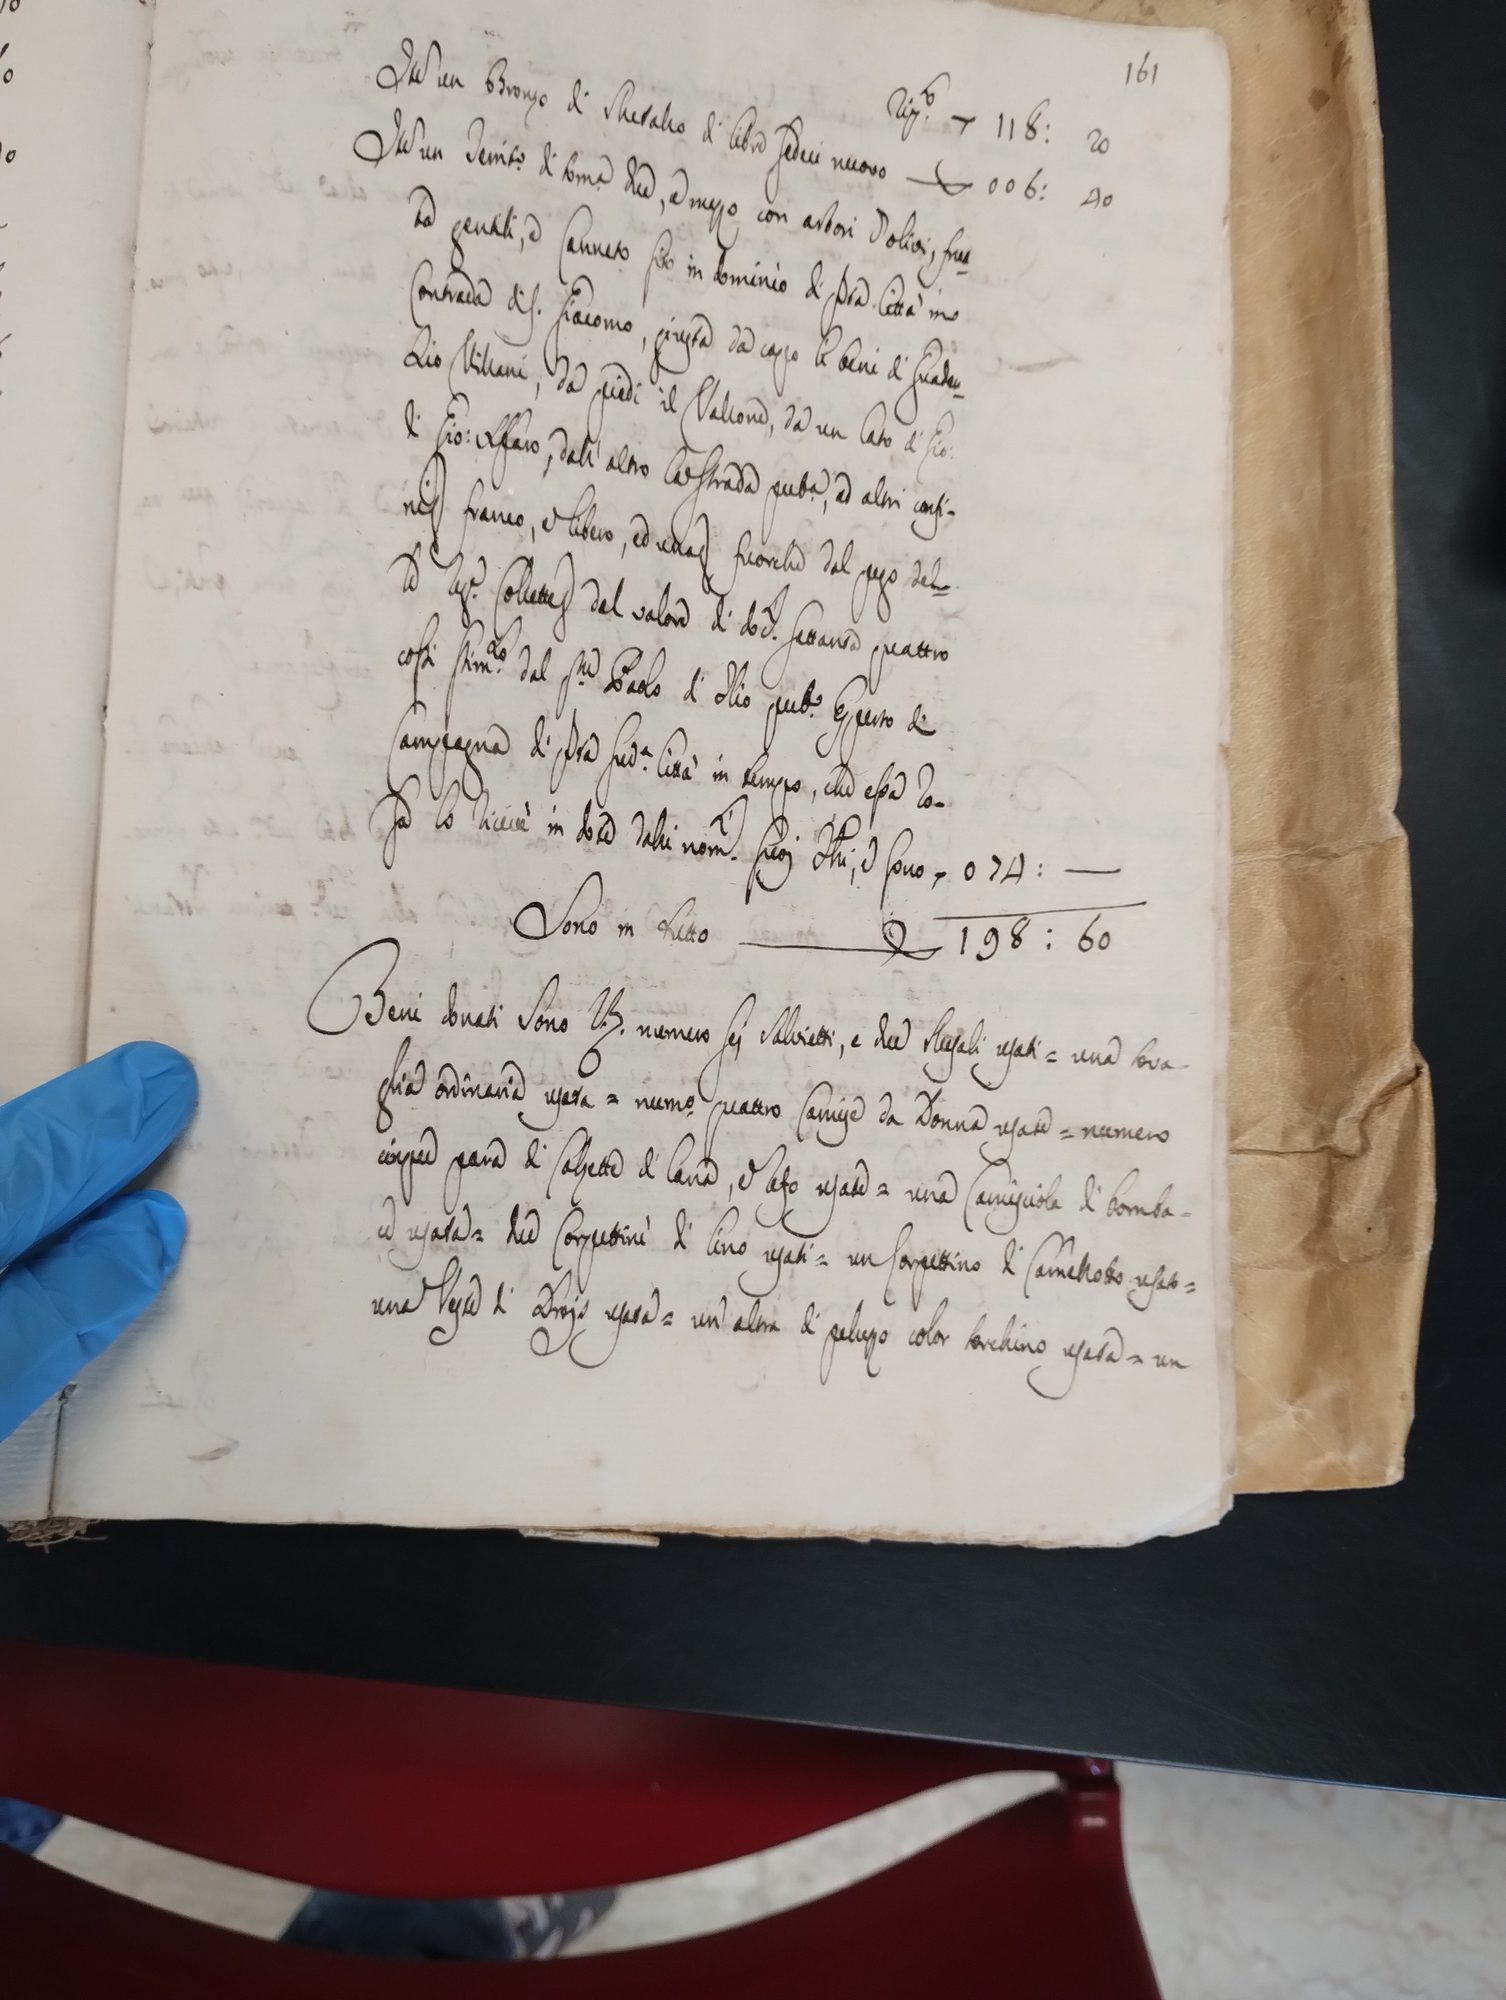 161
Rip.to — 118: 20
Itē un Bronzo di Metallo di libre sedici nuovo — 006: 40
Itē un Territ.o di tom.a due, e mezzo con arbori d'olivi, frut=
ta gentili, e Canneto sito in dominio di q̄sta Città in
Contrada di S. Giacomo, giusta da capo li beni di
Lio Villani, da piedi il Vallone, da un lato di Gio:
di Gio: Alfano, dall'altro la strada pub.a, ed altri confi=
ni franco, e libero, ed fuorche dal peso del=
le Collette del valore di doc.ti settanta quattro
così stim.to dal Paolo di Ilio pub.o Esperto di
Campagna di q̄sta sud.a Città in tempo, che essa Ro=
sa lo ricevè in dote dalli nom.ti suoi e sono — 074: —
Sono in tutto — 198: 60
Beni donati sono V.Z. numero sei salvietti, e due usati = una tova=
glia ordinaria usata = num.o quattro Camise da Donna usate = numero
cinque para di Calzette di lana, e usate = una Camisciola di bomba=
ce usata = due Corpettini di lino usati = un Corpettino di Camellotto usato =
una Veste di usata = un'altra di peluzzo color torchino usata = un